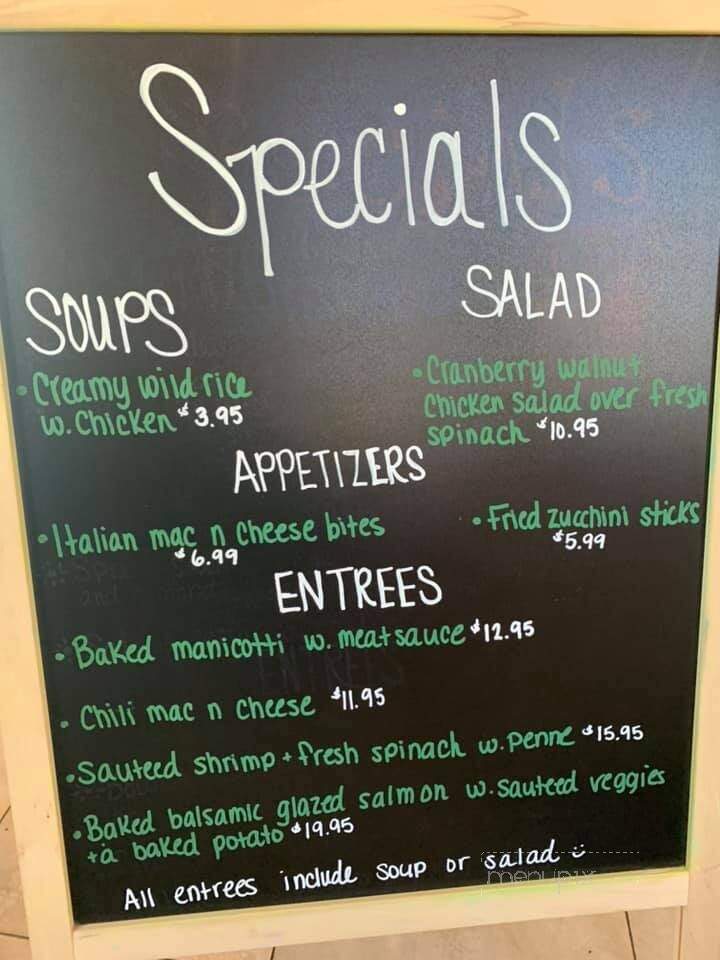 Specials
SOUPS
• Creamy wild rice
w. Chicken $3.95
SALAD
• Cranberry walnut
Chicken salad over fresh
spinach $10.95
APPETIZERS
• Italian mac n cheese bites
$6.99
• Fried zucchini sticks
$5.99
ENTREES
• Baked manicotti w. meat sauce $12.95
• Chili mac n cheese $11.95
• Sauteed shrimp + fresh spinach w. penne $15.95
• Baked balsamic glazed salmon w. sauteed veggies
+ a baked potato $19.95
All entrees include soup or salad :)
menupix